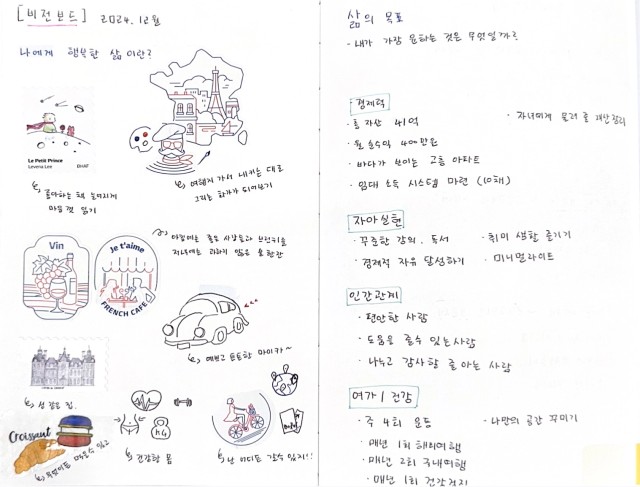 [비전보드] 2024.12월
나에게 행복한 삶이란?
Le Petit Prince
Levena Lee
좋아하는 책 눈여겨
마음껏 읽기
여행지 가서 내키는 대로
그리는 화가가 되어보기
아침에는 좋은 사람들과 브런치를
저녁에는 과하지 않은 술 한잔
Vin
Je t'aime
FRENCH CAFE
예쁘고 튼튼한 마이카~
성 같은 집.
Croissant
건강한 몸
난 어디든 갈수 있지!!
삶의 목표
· 내가 가장 원하는 것은 무엇일까?
· 경제력
· 총 자산 41억
· 월 순수익 400만원
· 바다가 보이는 고층 아파트
· 임대 소득 시스템 마련 (10채)
· 자녀에게 물려 줄 재산정리
자아실현
· 꾸준한 강의, 독서
· 경제적 자유 달성하기
· 취미 생활 즐기기
· 미니멀라이프
인간관계
· 편안한 사람
· 도움을 줄수 있는 사람
· 나누고 감사할 줄 아는 사람
여가 / 건강
· 주 4회 운동
· 매년 1회 해외여행
· 매년 2회 국내여행
· 매년 1회 건강검진
· 나만의 공간 꾸미기